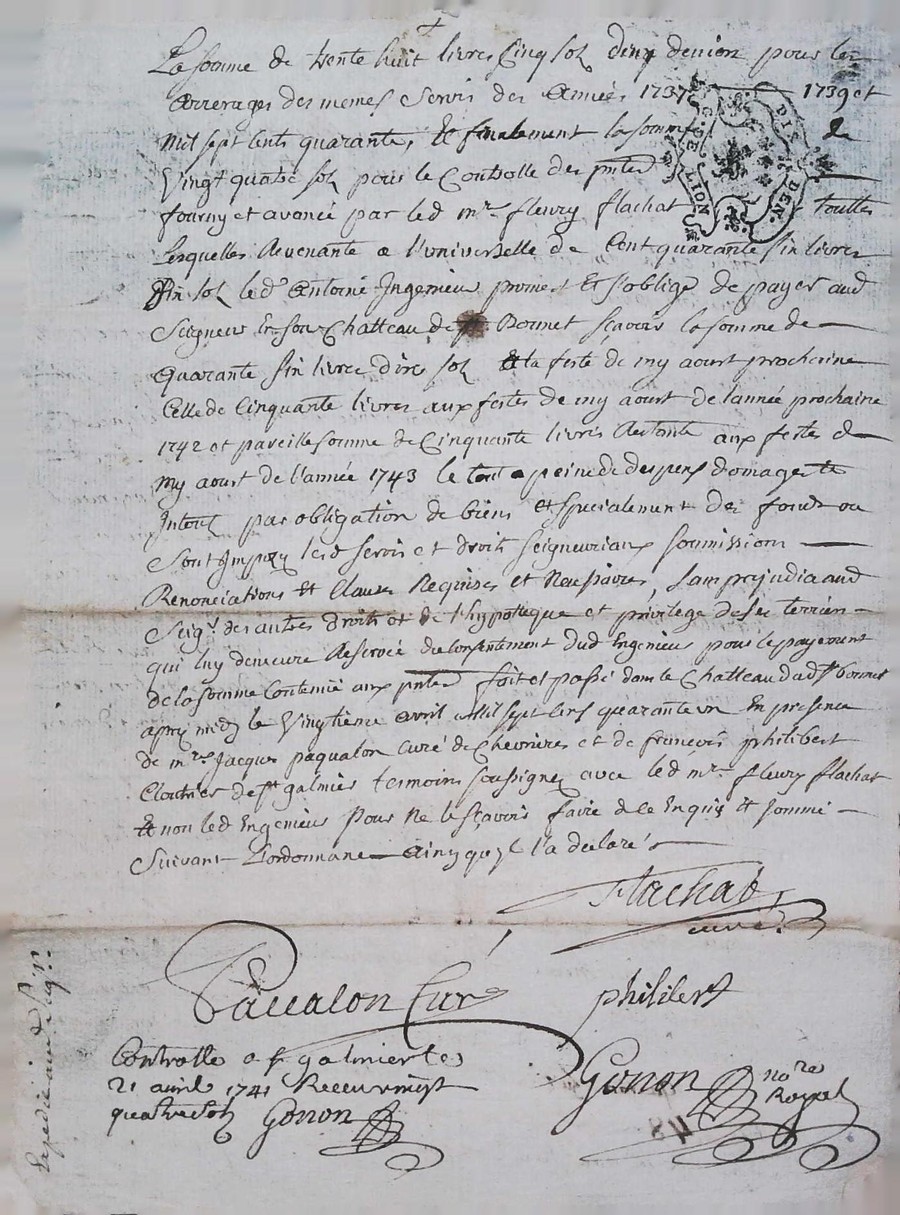 La somme de trente huit livres Cinq sols deux deniers pour les
arrerages des memes Servis des Années 1737 1739 et
mil sept cents quarante, Et finalement la somme de
Vingt quatre sols pour le Controlle des pntes
fourny et avancé par led mre fleury flachat touttes
Lesquelles Revenante a l'universelle de Cent quarante sin livres
sin sols led Antoine Ingenieux promet Et s'oblige de payer aud
Seigneur En son Chatteau de Bonnet sçavoir la somme de
quarante sin livres dire sols a la feste de my aoust prochaine
Celle de Cinquante livres aux festes de my aoust de l'année prochaine
1742 et pareille somme de Cinquante livres Restante aux festes de
my aoust de l'année 1743 le tout a peine de despens domages et
Interets par obligation de biens et specialement des fonds ou
Sont Imposés lesd servis et droits seigneuriaux soumissions
Renonciations Et Clauses Requises et Necessaires, sans prejudice aud
Seigr des autres droits et de l'hypotteque et privilege de ses terriers
qui luy demeure Reservée du Consentement dud Ingenieux pour le payement
de la somme Contenue aux pntes fait et passé dans le Chatteau dud st bonnet
apres midy le Vingtieme avril mil sept cens quarante un En presence
de mres Jacques paqualon Curé de Chevrieres et de françois philibert
Cloutrier de st galmier tesmoins soussignes avec led mre fleury flachat
Et non led Ingenieux pour Ne le sçavoir faire de ce Enquis Et sommé
Suivant L'ordonnance ainsy qu'il l'a declaré
Flachat
curé
Pacalon Curé
philibert
Controlle a st galmier le
21 avril 1741 Receu vingt
quatre sols Gonon
Gonon nore
Royal
Expedié aud Seigr
DIX DEN.
48